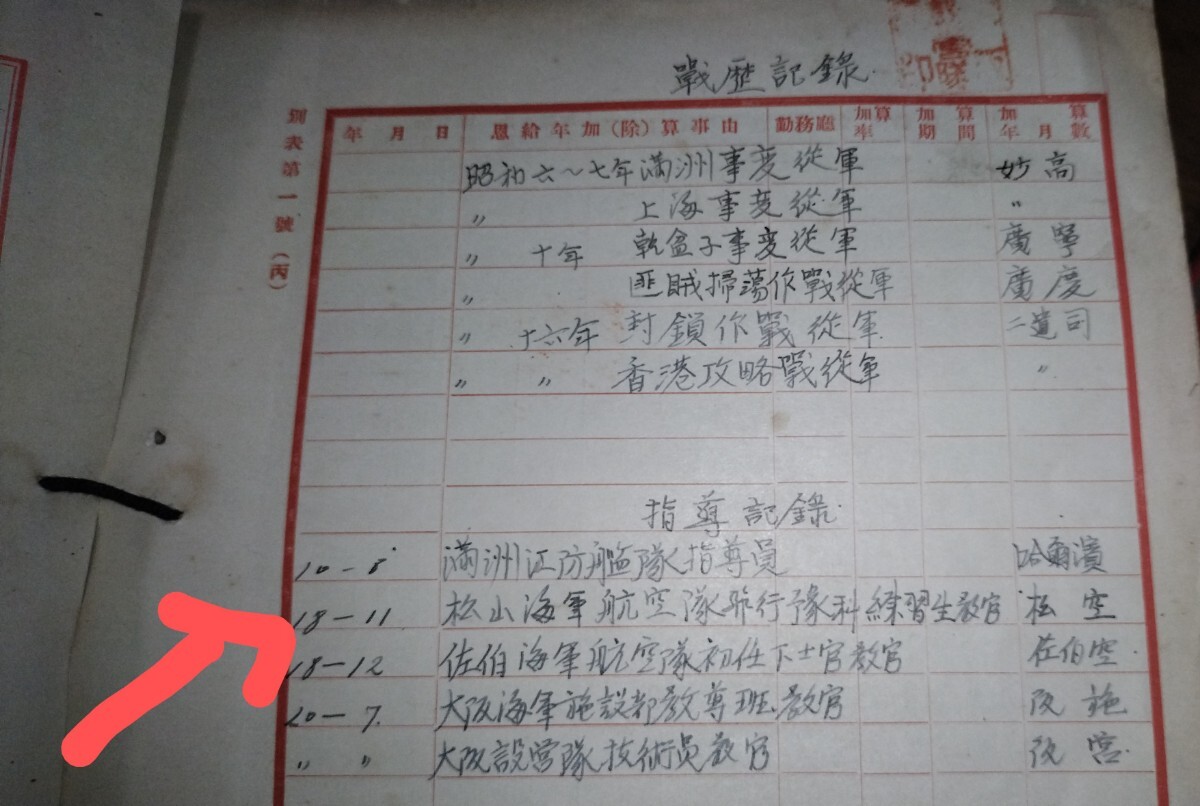 戰歴記錄.
別表第一號(丙)
年月日 恩給年加(除)算事由 勤務廳 加算率 加算期間 加算年月數
昭和六～七年満洲事変從軍 妙高
〃 上海事変從軍 〃
〃 十年 事変從軍 廣寧
〃 匪賊掃蕩作戰從軍 廣慶
〃 十六年 封鎖作戰從軍 二遣司
〃 〃 香港攻略戰從軍 〃
指導記錄.
10-8 満洲江防艦隊指導員 哈爾濱
18-11 松山海軍航空隊飛行豫科練習生教官 松空
18-12 佐伯海軍航空隊初任下士官教官 佐伯空.
20-7. 大阪海軍施設部教導班教官 阪施
〃 〃 大阪設営隊技術員教官